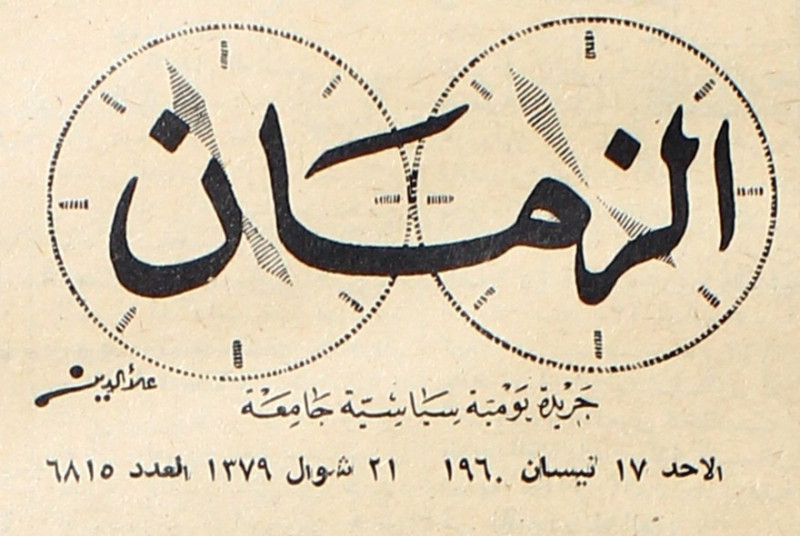 الزمان
علاءالدين
جَرِيْدة يَوْميَة سِيَاسِيّة جَامِعَة
الاحد ١٧ نيسان ١٩٦٠ ٢١ شوال ١٣٧٩ العدد ٦٨١٥